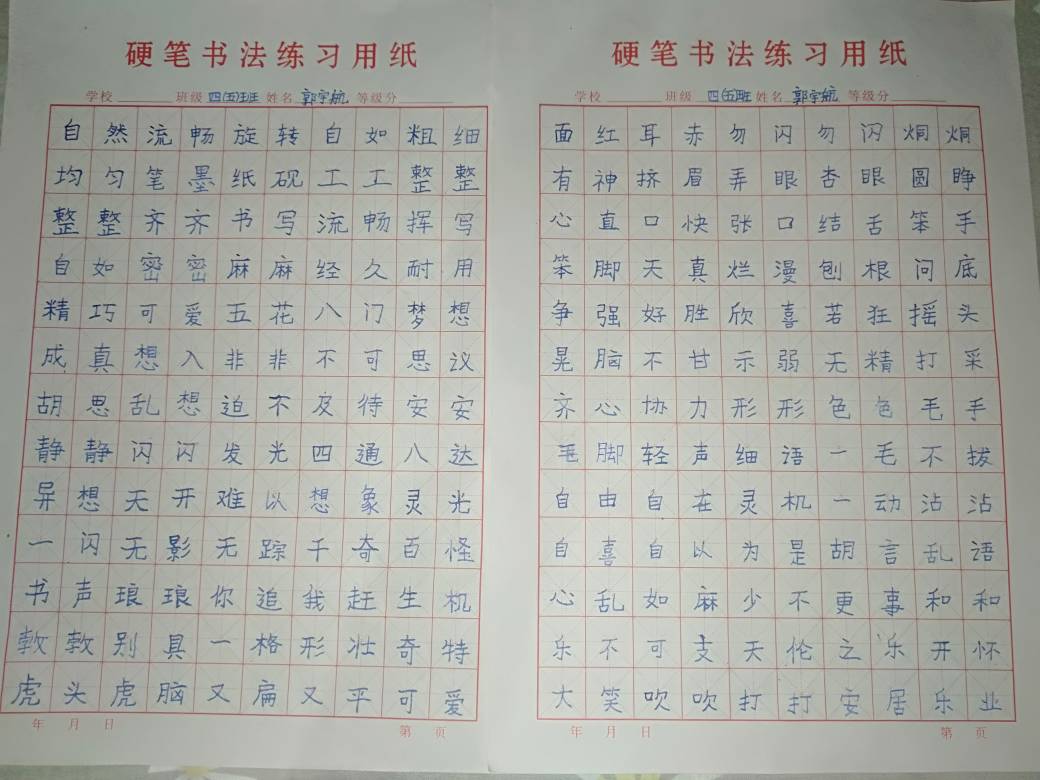 硬笔书法练习用纸
学校 班级 四(五)班 姓名 郭宇航 等级分
自然流畅旋转自如粗细
均匀笔墨纸砚工工整整
整整齐齐书写流畅挥写
自如密密麻麻经久耐用
精巧可爱五花八门梦想
成真想入非非不可思议
胡思乱想迫不及待安安
静静闪闪发光四通八达
异想天开难以想象灵光
一闪无影无踪千奇百怪
书声琅琅你追我赶生机
敦敦别具一格形壮奇特
虎头虎脑又扁又平可爱
年 月 日 第 页
硬笔书法练习用纸
学校 班级 四(五)班 姓名 郭宇航 等级分
面红耳赤勿闪勿闪炯炯
有神挤眉弄眼杏眼圆睁
心直口快张口结舌笨手
笨脚天真烂漫刨根问底
争强好胜欣喜若狂摇头
晃脑不甘示弱无精打采
齐心协力形形色色毛手
毛脚轻声细语一毛不拔
自由自在灵机一动沾沾
自喜自以为是胡言乱语
心乱如麻少不更事和和
乐不可支天伦之乐开怀
大笑吹吹打打安居乐业
年 月 日 第 页